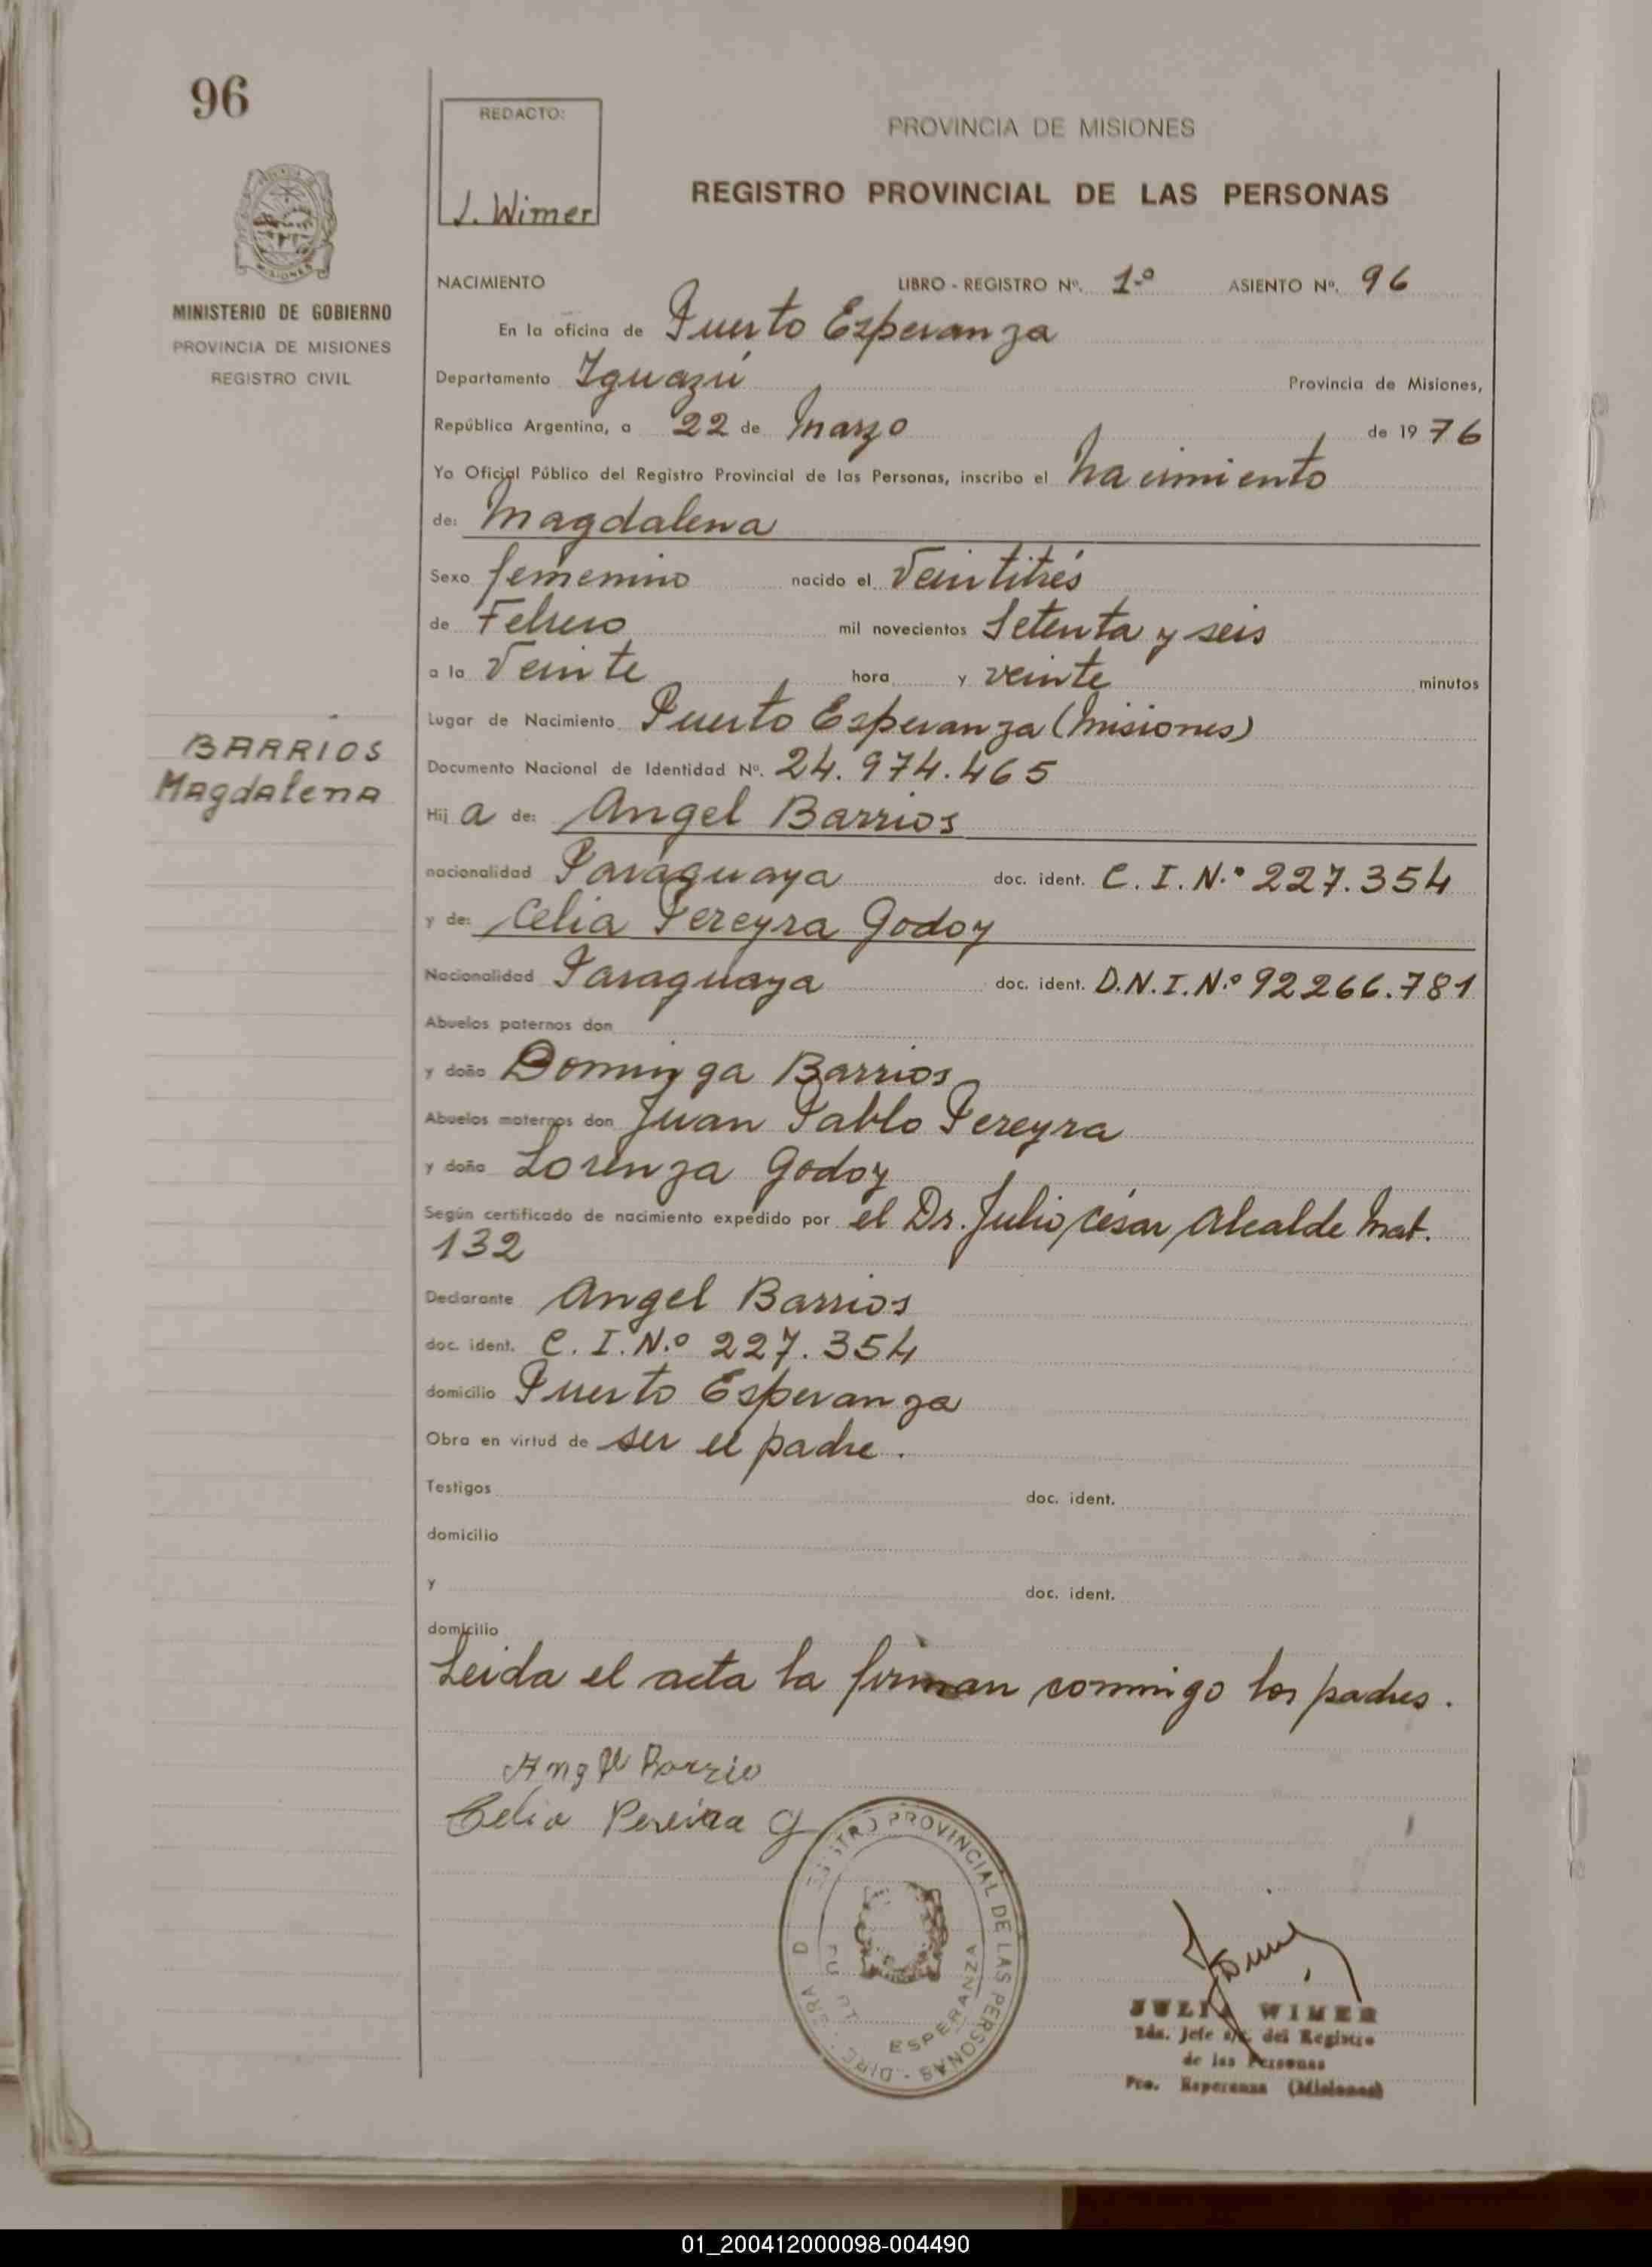 96
MISIONES
MINISTERIO DE GOBIERNO
PROVINCIA DE MISIONES
REGISTRO CIVIL
BARRIOS
Magdalena
REDACTO:
J. Wimer
PROVINCIA DE MISIONES
REGISTRO PROVINCIAL DE LAS PERSONAS
NACIMIENTO LIBRO - REGISTRO Nº. 1º ASIENTO Nº. 96
En la oficina de Puerto Esperanza
Departamento Iguazú Provincia de Misiones,
República Argentina, a 22 de Marzo de 1976
Yo Oficial Público del Registro Provincial de las Personas, inscribo el nacimiento
de: Magdalena
Sexo femenino nacido el Veintitrés
de Febrero mil novecientos Setenta y seis
a la Veinte hora y veinte minutos
Lugar de Nacimiento Puerto Esperanza (Misiones)
Documento Nacional de Identidad Nº. 24.974.465
Hija de: Angel Barrios
nacionalidad Paraguaya doc. ident. C.I.N.º 227.354
y de: Celia Pereyra Godoy
Nacionalidad Paraguaya doc. ident. D.N.I.N.º 92266.781
Abuelos paternos don
y doña Dominga Barrios
Abuelos maternos don Juan Pablo Pereyra
y doña Lorenza Godoy
Según certificado de nacimiento expedido por el Dr. Julio César Alcalde Mat.
132
Declarante Angel Barrios
doc. ident. C.I.N.º 227.354
domicilio Puerto Esperanza
Obra en virtud de ser el padre.
Testigos doc. ident.
domicilio
y doc. ident.
domicilio
Leida el acta la firman conmigo los padres.
Angel Barrio
Celia Pereira G
PROVINCIAL DE LAS PERSONAS
ESPERANZA
JULIA WIMER
2da. Jefe a/c. del Registro
de las Personas
Pto. Esperanza (Misiones)
01_200412000098-004490